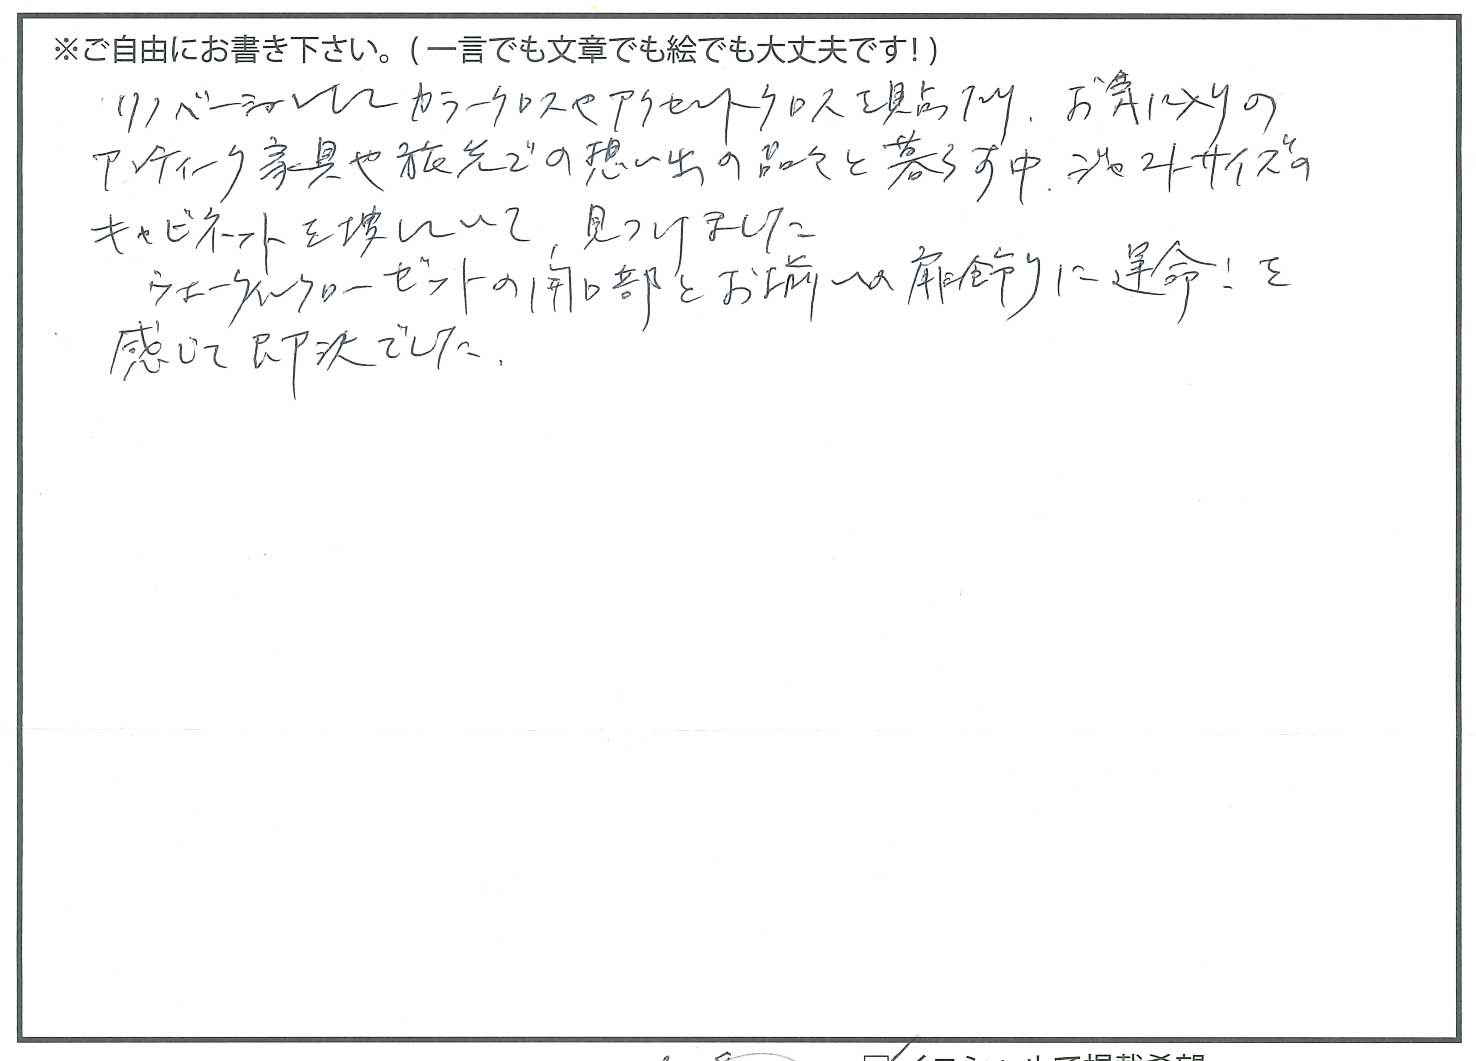 ※ご自由にお書き下さい。(一言でも文章でも絵でも大丈夫です!)
リノベーションしてカラークロスやアクセントクロスを現品たり、お気に入りの
アンティーク家具や旅先での想い出の品々と暮らす中、ジャストサイズの
キャビネットを探していて、見つけました
ウォークインクローゼットの開口部とお揃いの扉飾りに運命!を
感じて即決でした。